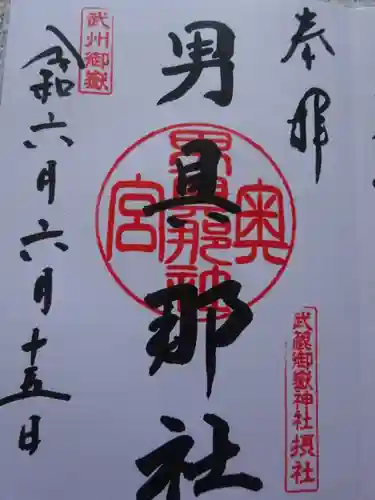 奉拝
武蔵御嶽神社 摂社
男具那社
奥宮
男具那神社
武州御嶽
令和六月六月十五日